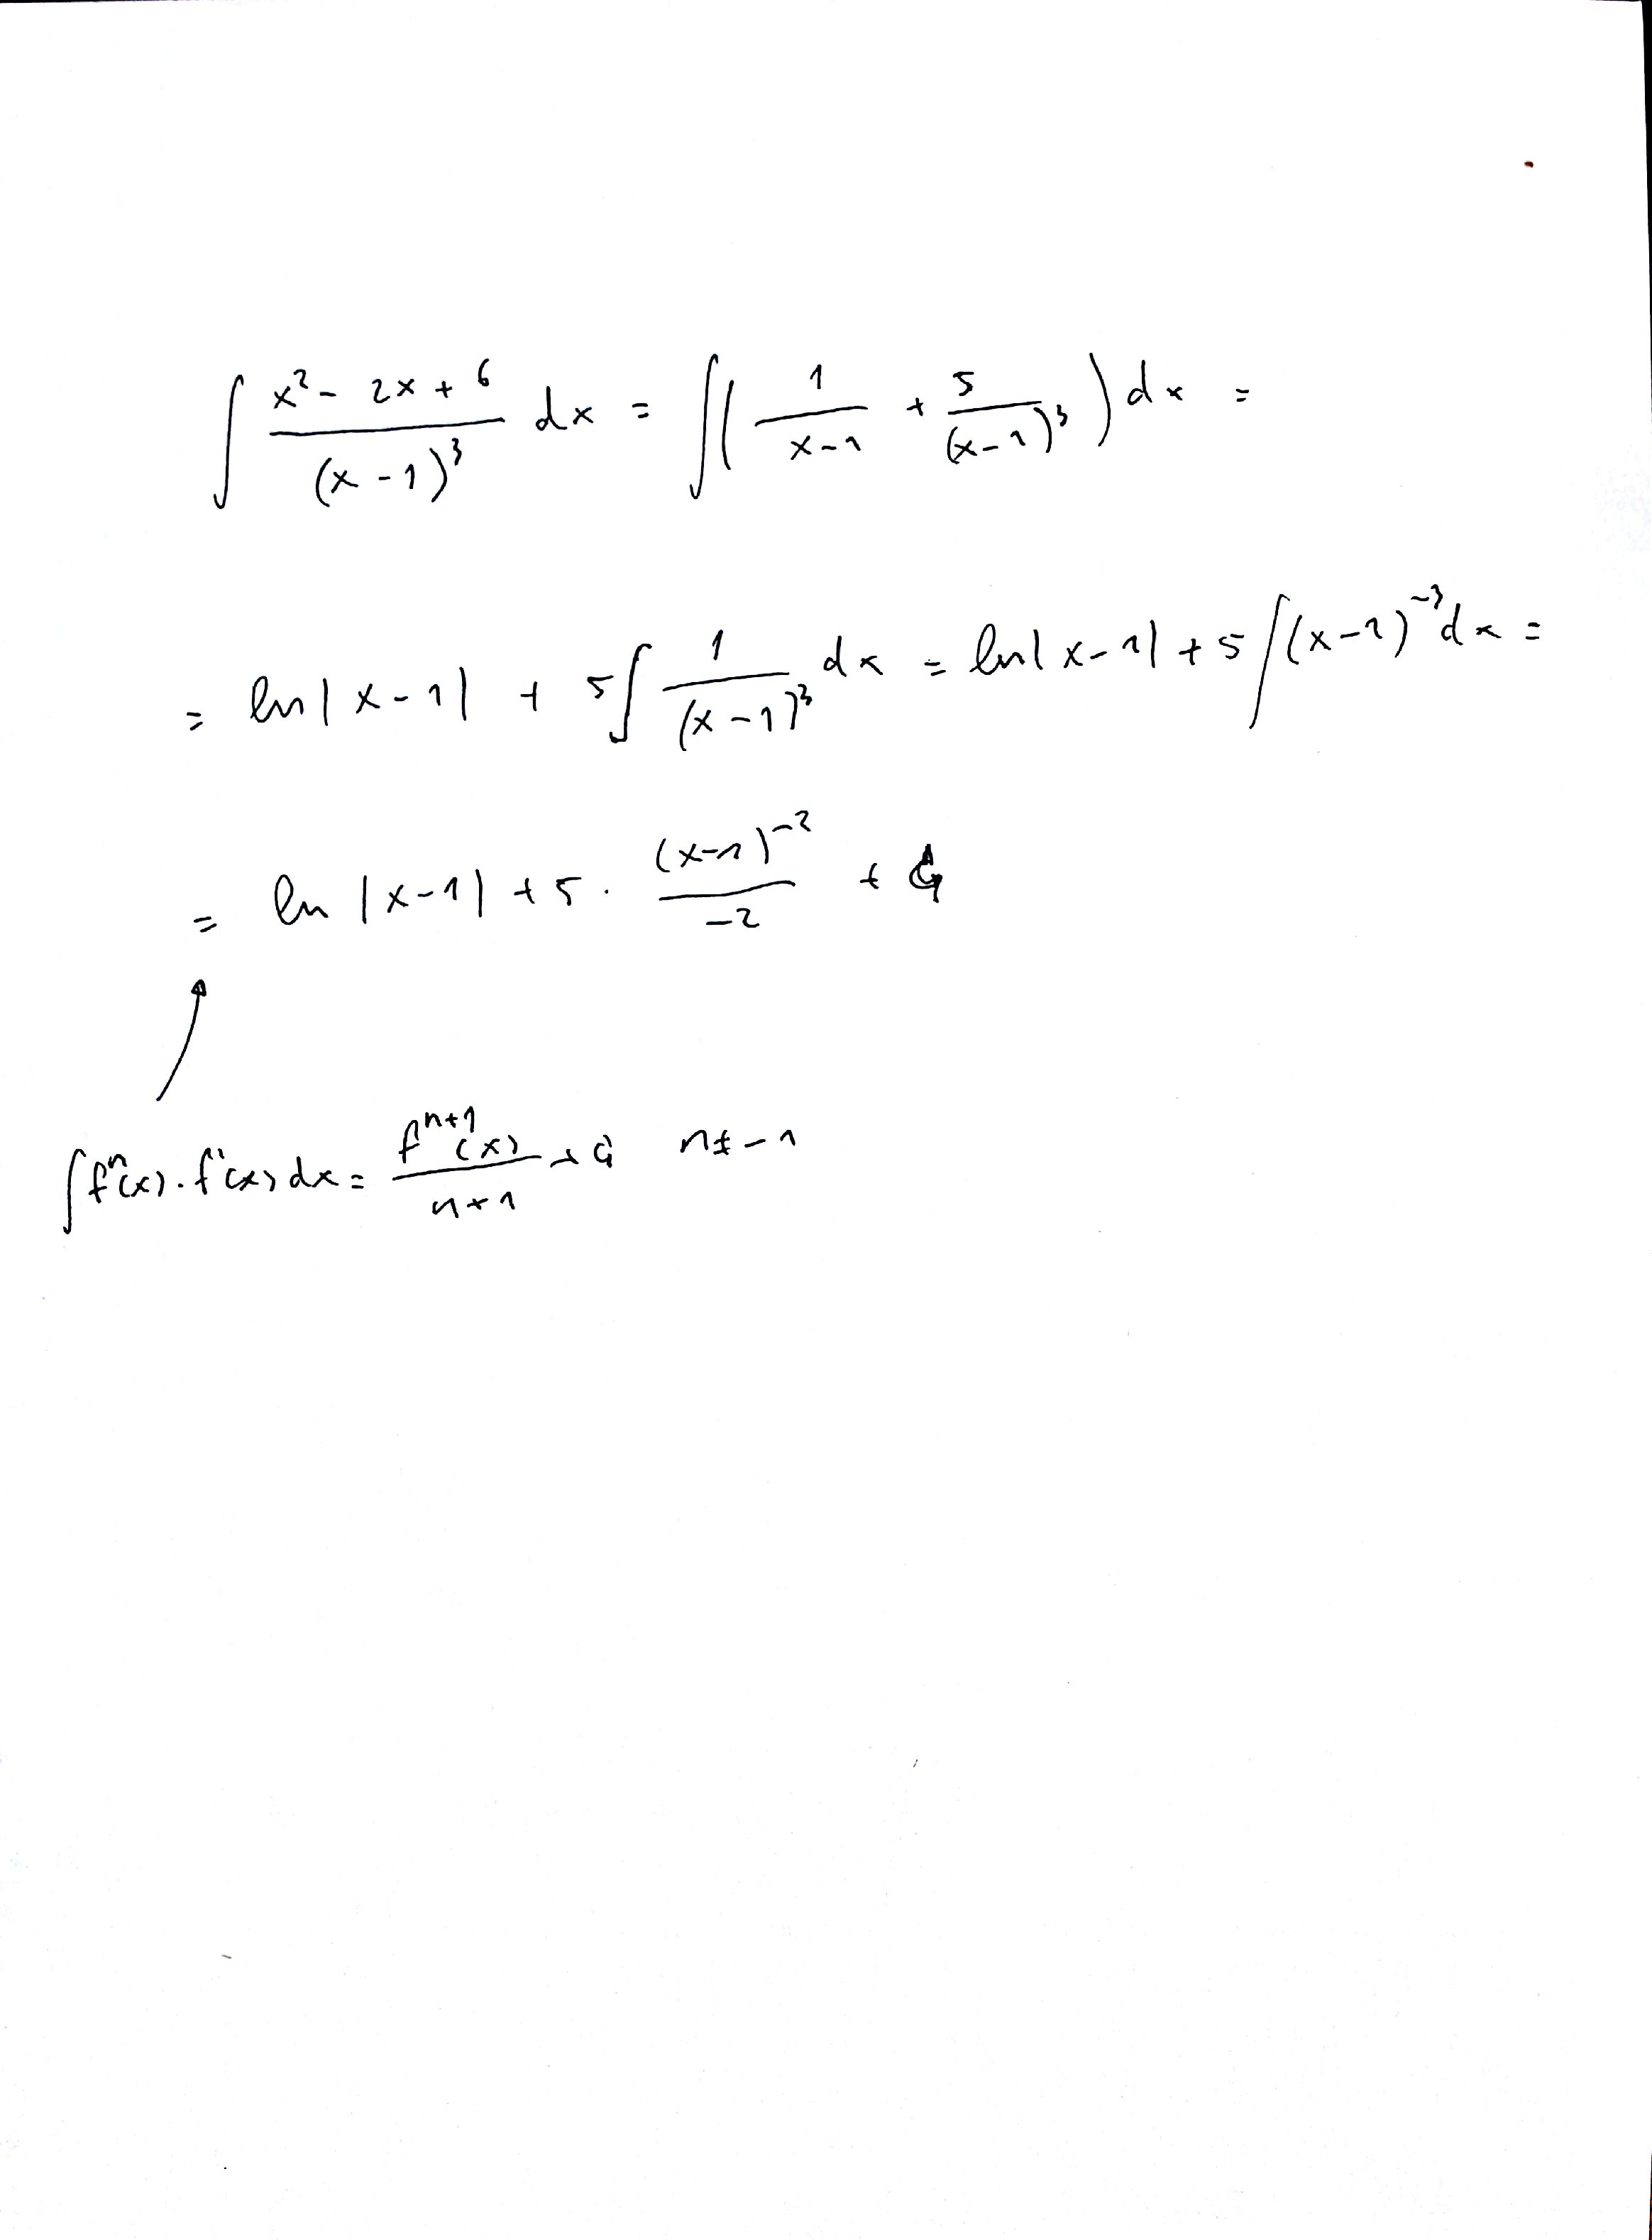 ∫ (x² - 2x + 6)/(x - 1)³ dx = ∫( 1/(x-1) + 5/(x-1)³ ) dx =
= ln|x-1| + 5∫ 1/(x-1)³ dx = ln|x-1| + 5∫(x-1)⁻³dx =
= ln|x-1| + 5 · (x-1)⁻²/-2 + C
∫fⁿ(x)·f'(x)dx = fⁿ⁺¹(x)/(n+1) + C n≠-1